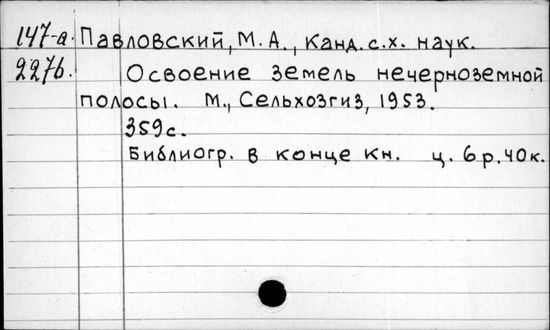 147-а. Павловский, М. А., канд. с.х. наук.
2276. Освоение земель нечерноземной
полосы. М., Сельхозгиз, 1953.
359с.
Библиогр. в конце кн. ц. 6р.40к.